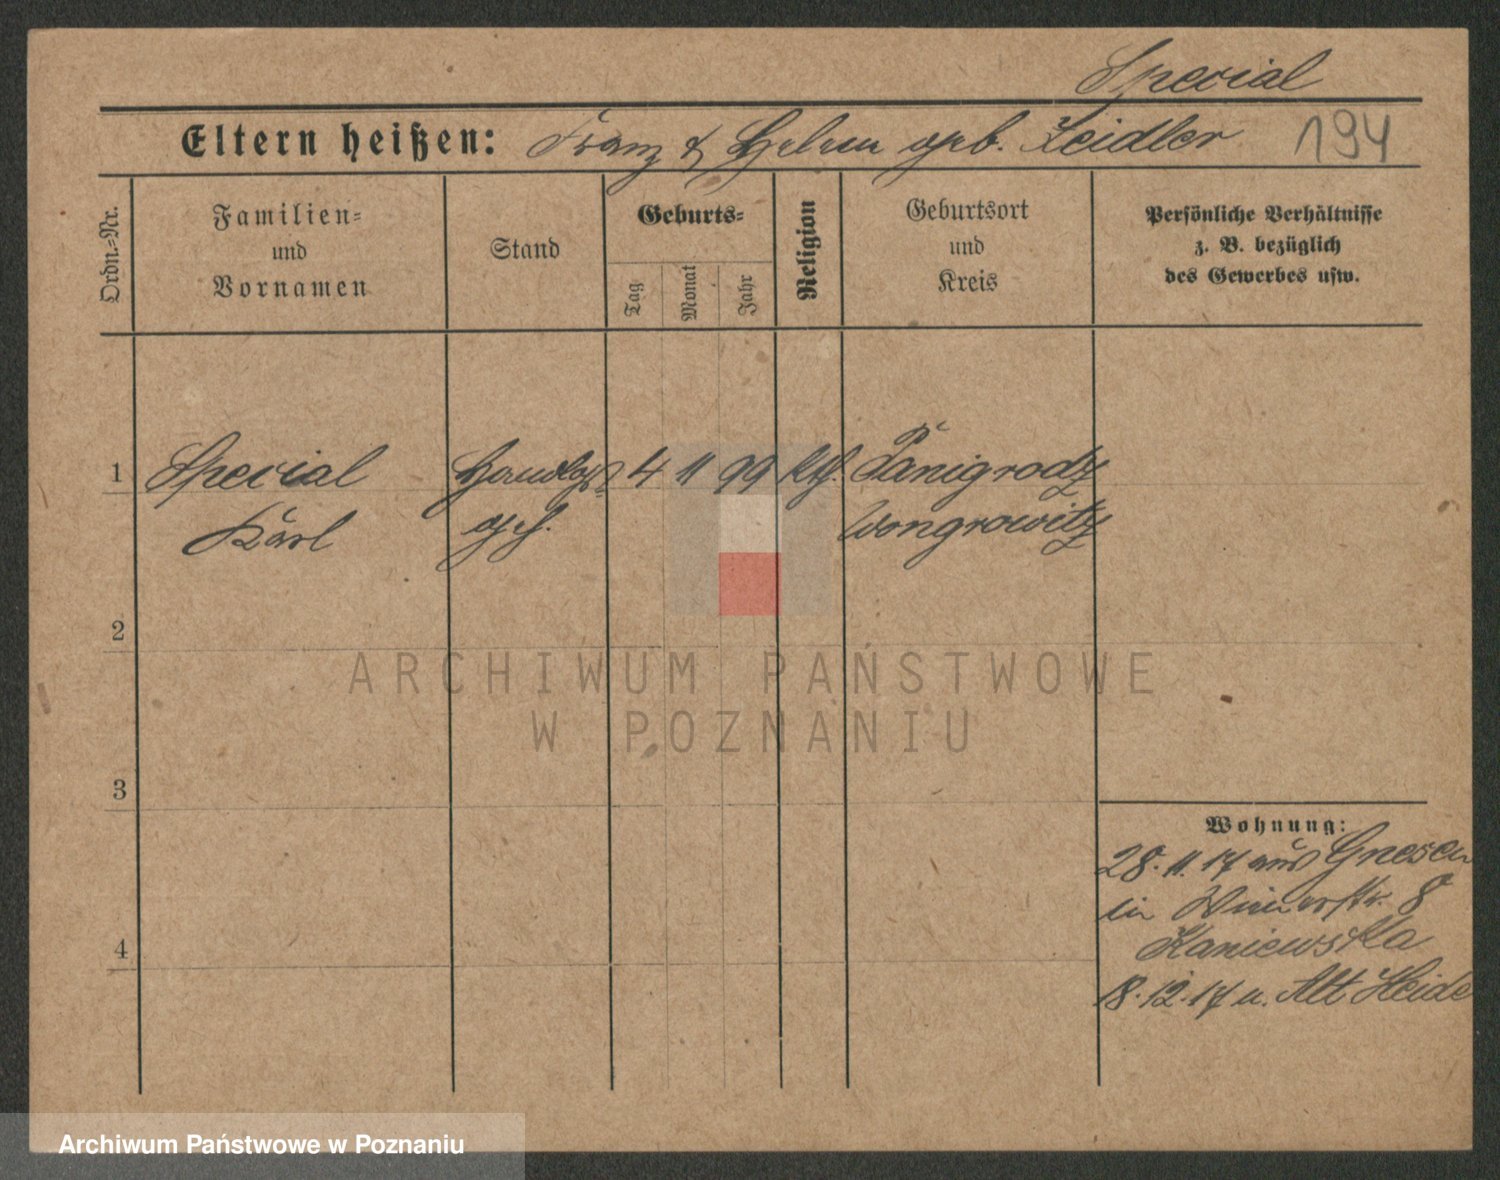 Special
Eltern heißen: Franz & Helene geb. Zeidler 194
Ordn.=Nr.
Familien=
und
Vornamen
Stand
Geburts=
Tag
Monat
Jahr
Religion
Geburtsort
und
Kreis
Persönliche Verhältnisse
z. B. bezüglich
des Gewerbes usw.
1 Special 4 11 99 kth. Panigrodz
Karl Wongrowitz
2
3
4
Wohnung:
28. 11. 17 aus Gnesen
in 8
Kaniewska
18. 12. 17 n. Alt Heide
ARCHIWUM PAŃSTWOWE
W POZNANIU
Archiwum Państwowe w Poznaniu